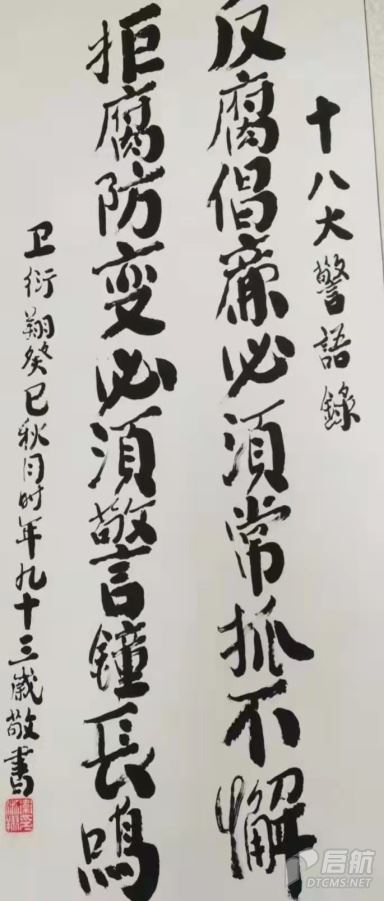 十八大警语錄
反腐倡廉必须常抓不懈
拒腐防变必须警鐘長鸣
卫衍翔癸巳秋月时年九十三歲敬書
启航
DTCMS.NET